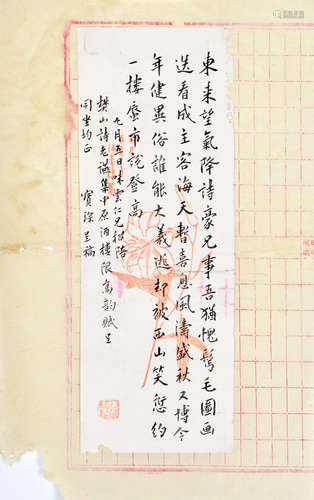 東来望氣降詩豪兄事吾猶愧鬢毛圖画
迭看成主客海天暫喜息風濤盛秋又博今
年健異俗誰能大義逃却被西山笑愆約
一樓蜃市說登高
九月五日味雲仁兄招陪
樊山詩老讌集中原酒樓限高韵賦呈
同坐均正 寶琛呈稿